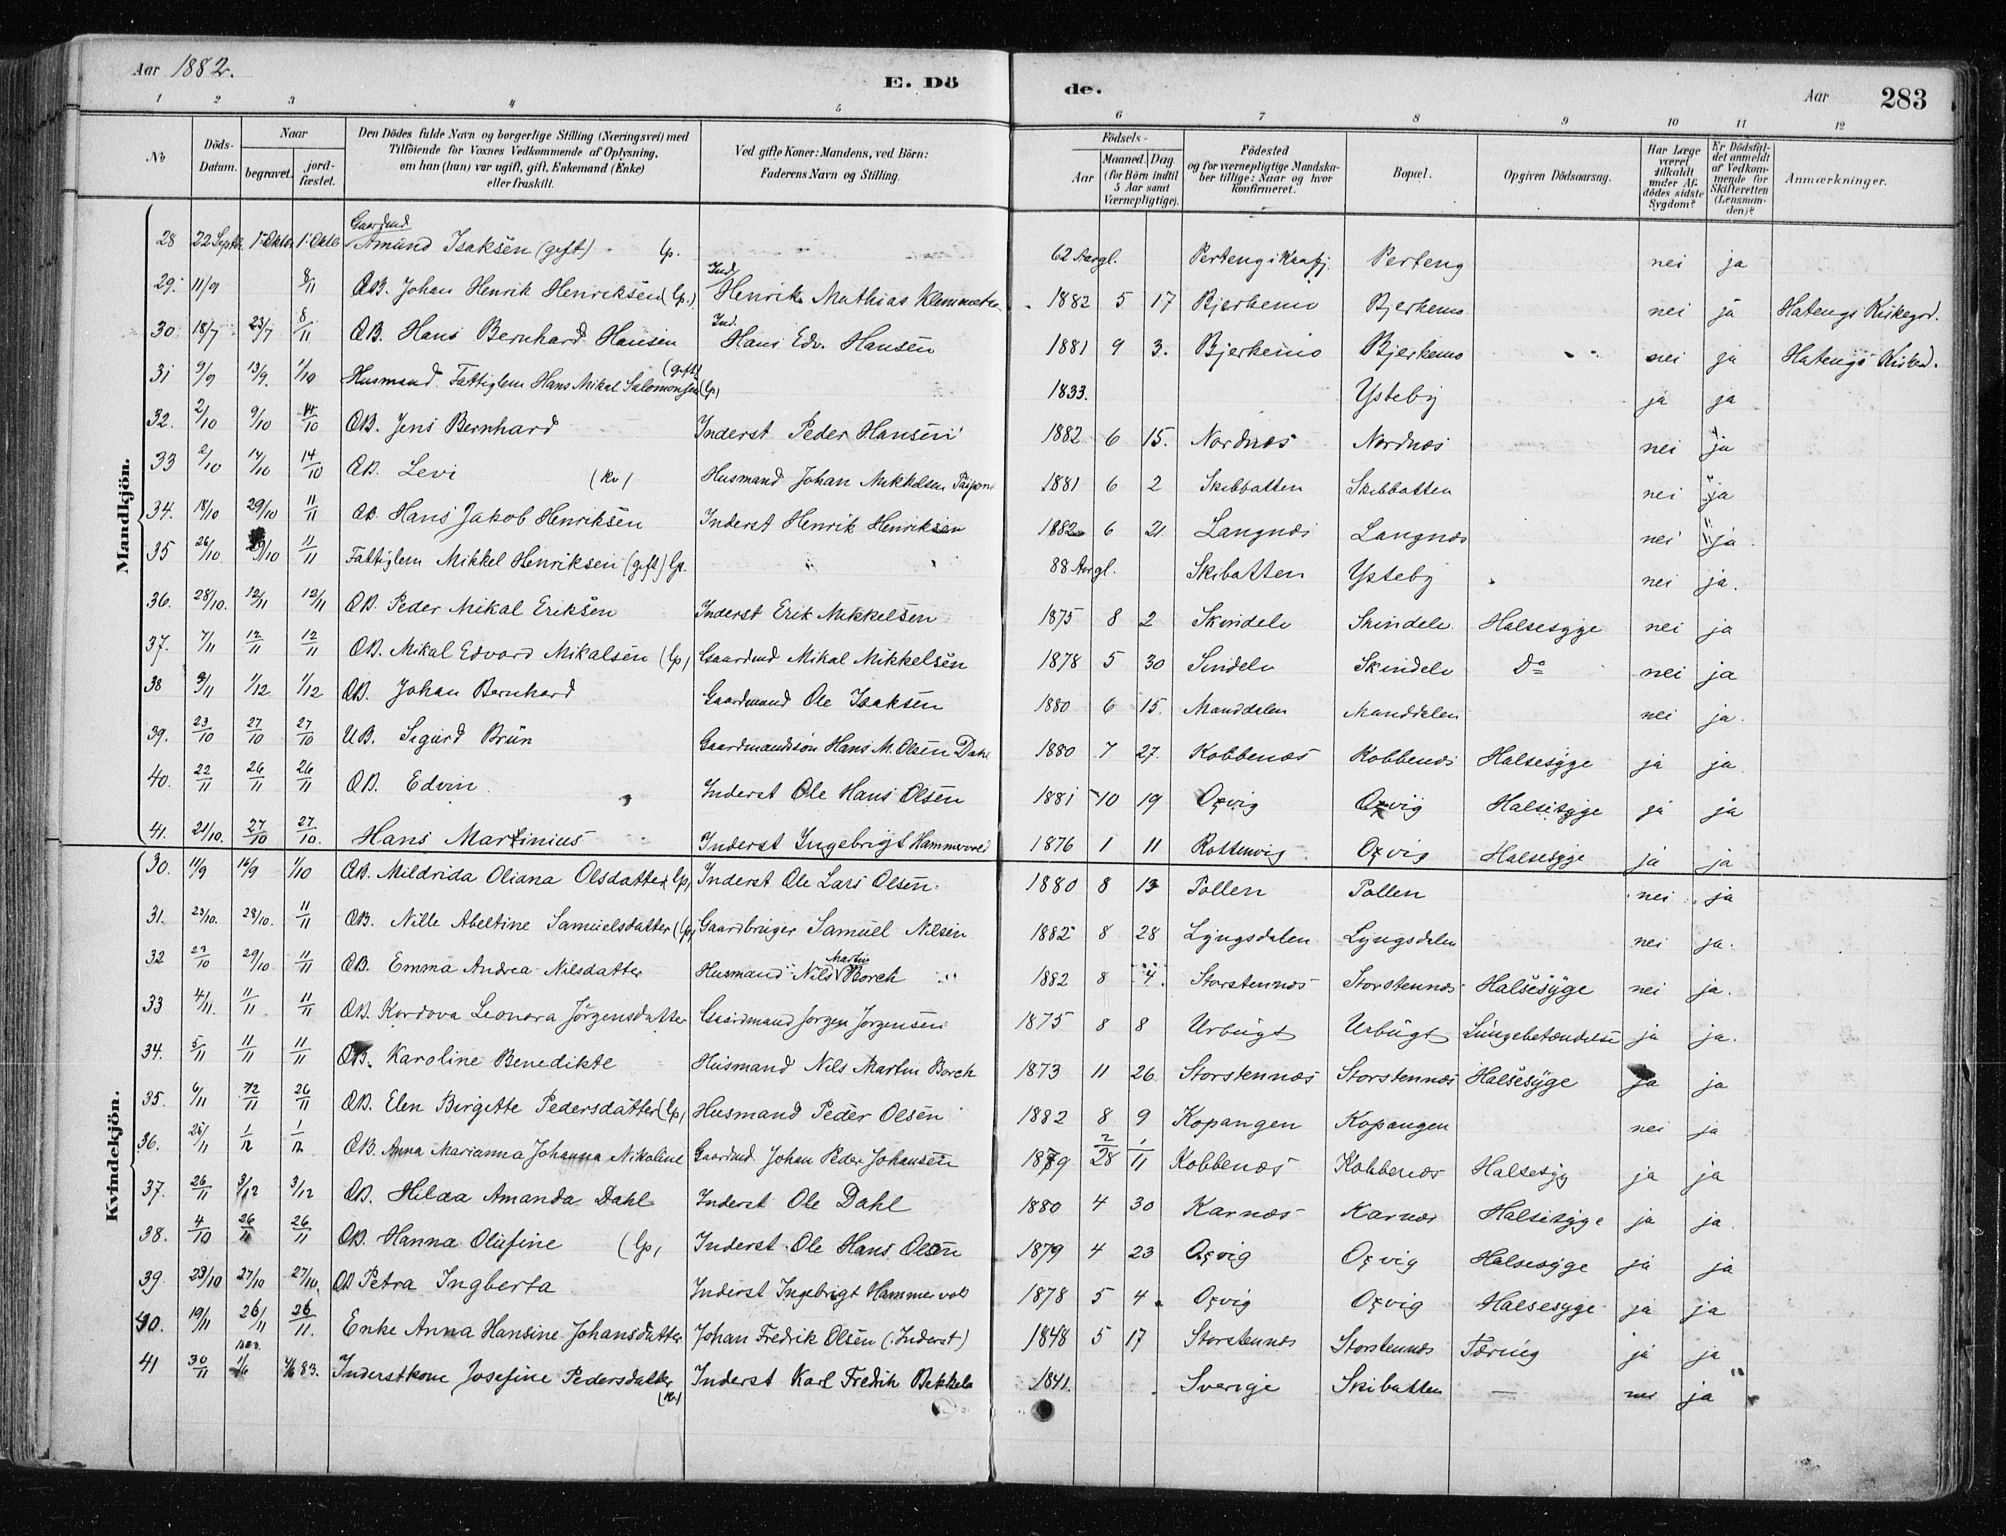 Aar 1882.
E. Dö
de.
Aar
283
1 2 3 4 5 6 7 8 9 10 11 12
No
Döds-Datum.
Naar
begravet. jordfæstet.
Den Dödes fulde Navn og borgerlige Stilling (Næringsvei) med Tilföiende for Voxnes Vedkommende af Oplysning, om han (hun) var ugift, gift, Enkemand (Enke) eller fraskilt.
Ved gifte Koner: Mandens, ved Börn: Faderens Navn og Stilling.
Födsels-
Aar Maaned. Dag (for Börn indtil 5 Aar samt Værnepligtige).
Födested og for værnepligtige Mandskaber tillige: Naar og hvor konfirmeret.
Bopæl.
Opgiven Dödsaarsag.
Har Læge været tilkaldt under Afdödes sidste Sygdom?
Er Dödsfaldet anmeldt af Vedkommende for Skifteretten (Lensmanden)?
Anmærkninger.
Mandkjön.
28 22 Septr. 1 Oktbr 1 Oktb Gaardmd Amund Isaksen (gift) Lp. 62 Aar gl. Perteng i Kaafj. Perteng nei ja
29. 11/9 8/11 OB. Johan Henrik Henriksen (Lp.) Ind. Henrik Mathias Klemmetsen 1882 5 17 Bjerkemo Bjerkemo nei ja Hatengs Kirkegrd.
30. 18/7 23/7 8/11 OB. Hans Bernhard Hansen Ind. Hans Edv. Hansen 1881 9 3. Bjerkemo Bjerkemo nei ja Hatengs
31 9/9 13/9. 1/10 Husmand Fattiglem Hans Mikal Salomonsen (gift) (Lp) 1833. Ysteby ja ja
32. 2/10 9/10 14/10 OB. Jens Bernhard Inderst Peder Hansen 1882 6 15. Nordnæs Nordnæs nei ja
33 2/10 14/10 14/10 OB. Levi (Kv) Husmand Johan Mikkelsen 1881 6 2 Skibbatten Skibbatten nei ja
34. 18/10 29/10 11/11 OB. Hans Jakob Henriksen Inderst Henrik Henriksen 1882 6 21 Langnæs Langnæs nei ja
35 26/10 29/10 11/11 Fattiglem Mikkel Henriksen (gift) Lp. 88 Aar gl. Skibatten Ysteby nei ja.
36. 28/10. 12/11 12/11 OB. Peder Mikal Eriksen Inderst Erik Mikkelsen 1875 8 2 Skindelv Skindelv Halsesyge nei ja
37. 7/11 12/11 12/11 OB. Mikal Edvard Mikalsen (Lp) Gaardmd Mikal Mikkelsen 1878 5 30 Sindelv Skindelv Do nei ja
38 9/11 1/12 1/12 OB. Johan Bernhard Gaardmand Ole Isaksen 1880 6 15. Manddalen Manddalen nei ja.
39. 23/10 27/10 27/10 UB. Sigurd Brun Gaardmandssøn Hans M. Olsen Dahl 1880 7 27. Kobbenæs Kobbenæs Halsesyge ja ja
40. 22/11 26/11 26/11 OB. Edvin Inderst Ole Hans Olsen 1881 10 19 Oxvig Oxvig Halsesyge ja ja
41. 21/10. 27/10 27/10. Hans Martinius Inderst Ingebrigt Hammervold 1876 1 11 Rottenvig Oxvig Halsesyge ja ja
Kvindekjön.
30. 11/9 16/9 1/10 OB. Mildrida Oliana Olsdatter Lp) Inderst Ole Lars Olsen 1880 8 13 Pollen Pollen nei ja
31. 23/10. 28/10. 11/11 OB. Nille Abeltine Samuelsdatter (Lp) Gaardbruger Samuel Nilsen 1882 8 28 Lyngsdalen Lyngsdalen nei ja.
32 23/10 29/10 11/11 OB. Emma Andrea Nilsdatter Husmand Nils Martin Borch 1882 8 4. Storstennæs Storstennæs Halsesyge nei ja.
33 4/11 11/11 11/11 OB. Kordova Leonora Jörgensdatter Gaardmand Jorgen Jorgensen 1875 8 8 Urbugt Urbugt Lungebetændelse ja ja.
34. 5/11 11/11 11/11 OB. Karoline Benedikte Husmand Nils Martin Borch 1873 11 26 Storstennæs Storstennæs Halsesyge ja ja
35. 6/11 12/11 26/11 OB. Elen Birgitte Pedersdatter (Lp) Husmand Peder Olsen 1882 8 9 Kopangen Kopangen nei ja
36. 25/11 1/12 1/12 OB. Anna Marianna Johanna Nikoline Gaardmd. Johan Peder Johansen 1879 2/28 1/11 Kobbenæs Kobbenæs Halsesyg ja ja
37. 26/11 3/12 3/12 OB. Hilda Amanda Dahl Inderst Ole Dahl 1880 4 30 Karnæs Karnæs Halsesyge ja ja
38. 4/10 26/11 26/11 OB. Hanna Olufine (Lp) Inderst Ole Hans Olsen 1879 4 23 Oxvig Oxvig Halsesyge ja ja
39 23/10 27/10 27/10. OB Petra Ingberta Inderst Ingebrigt Hammervold 1878 5 4. Oxvig Oxvig Halsesyge ja ja
40. 19/11 26/11 26/11. Enke Anna Hansine Johansdatter Johan Fredrik Olsen (Inderst) 1848 5 17 Storstennæs Storstennæs Tæring ja ja
41 30/11 1/6 4/6 83. Inderstkone Josefine Pedersdatter (Kv) Inderst Karl Fredrik Bakkela 1841. Sverige Skibatten — nei ja